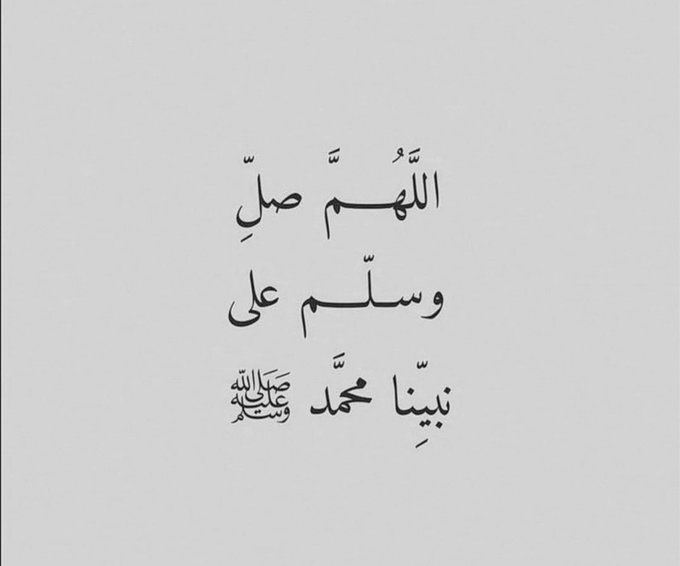 اللَّهُمَّ صلِّ
وسلّم على
نبيِّنا محمَّد ﷺ